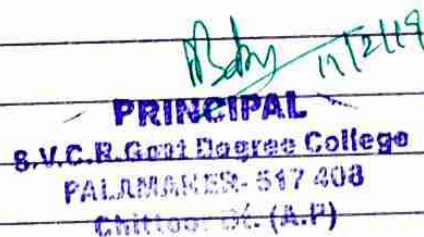 12/2/19
PRINCIPAL
S.V.C.R. Govt Degree College
PALAMANER- 517 408
Chittoor Dt. (A.P)